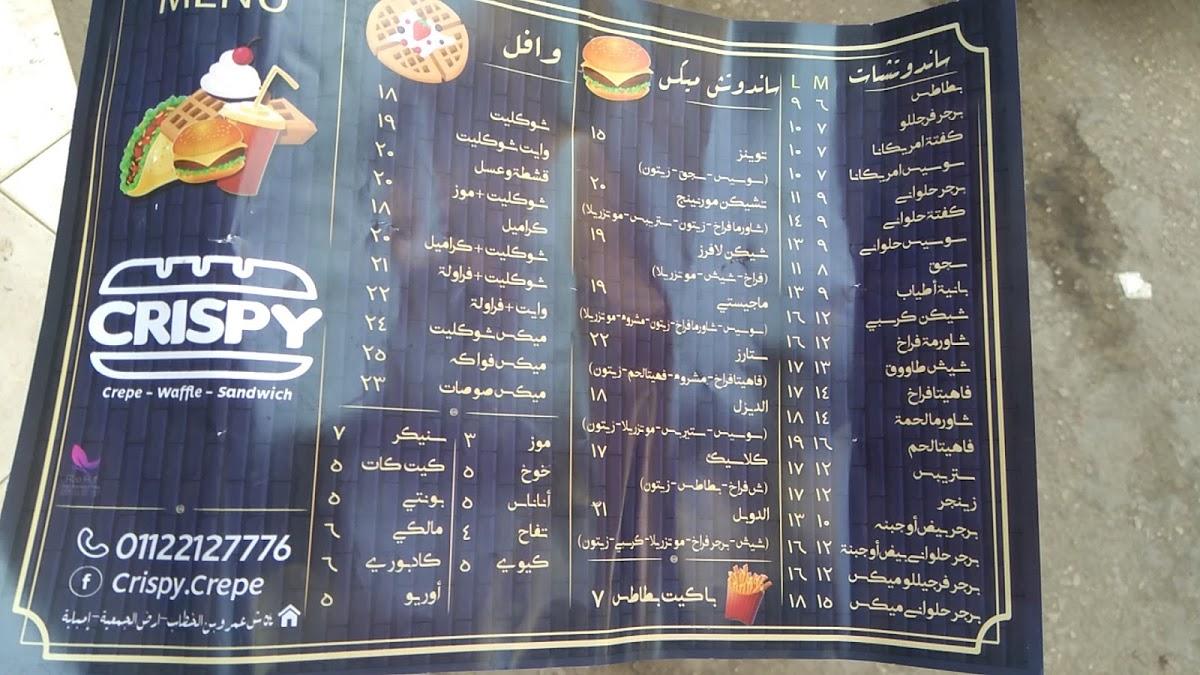 MENU
ساندوتشات
M L
بطاطس ٦ ٩
برجر فرجللو ٧ ١٠
كفتة امريكانا ٧ ١٠
سوسيس امريكانا ٧ ١٠
برجر حلواني ٩ ١١
كفتة حلواني ٩ ١٤
سوسيس حلواني ٩ ١٣
سجق ٨ ١١
بانية أطياب ٩ ١٣
شيكن كرسبي ١٢ ١٦
شاورمة فراخ ١٢ ١٦
شيش طاووق ١٣ ١٧
فاهيتا فراخ ١٤ ١٧
شاورما لحمة ١٤ ١٨
فاهيتا لحم ١٦ ١٩
ستربس ١٢ ١٧
زينجر ١٢ ١٧
برجر بيض أو جبنه ١٠ ١٣
برجر حلواني بيض أو جبنة ١٢ ١٦
برجر فرجيللو ميكس ١٢ ١٦
برجر حلواني ميكس ١٥ ١٨
ساندوتش ميكس
توينز ١٥
(سوسيس - سجق - زيتون)
تشيكن مورنينج ٢٠
(شاورما فراخ - زيتون - ستريبس - موتزريلا)
شيكن لافرز ١٩
(فراخ - شيش - موتزريلا)
ماجيستي ١٩
(سوسيس - شاورما فراخ - زيتون - مشروم - موتزريلا)
ستارز ٢٢
(فاهيتا فراخ - مشروم - فهيتا لحم - زيتون)
الديزل ١٨
(سوسيس - ستيربس - موتزريلا - زيتون)
كلاسيك ١٧
(ش فراخ - بطاطس - زيتون)
الدوبل ٢١
(شيش - برجر فراخ - موتزريلا - كرسبي - زيتون)
باكيت بطاطس ٧
وافل
شوكليت ١٨
وايت شوكليت ١٩
قشطة وعسل ٢٠
شوكليت + موز ٢٠
كراميل ١٨
شوكليت + كراميل ٢٠
شوكليت + فراولة ٢١
وايت + فراولة ٢٢
ميكس شوكليت ٢٤
ميكس فواكه ٢٥
ميكس صوصات ٢٣
موز ٣
خوخ ٥
أناناس ٥
تفاح ٤
كيوي ٥
سنيكر ٧
كيت كات ٥
بونتي ٥
مالكي ٦
كادبوري ٦
أوريو ٥
CRISPY
Crepe - Waffle - Sandwich
01122127776
f Crispy.Crepe
ش عمرو بن الخطاب - ارض الجمعية - إمبابة